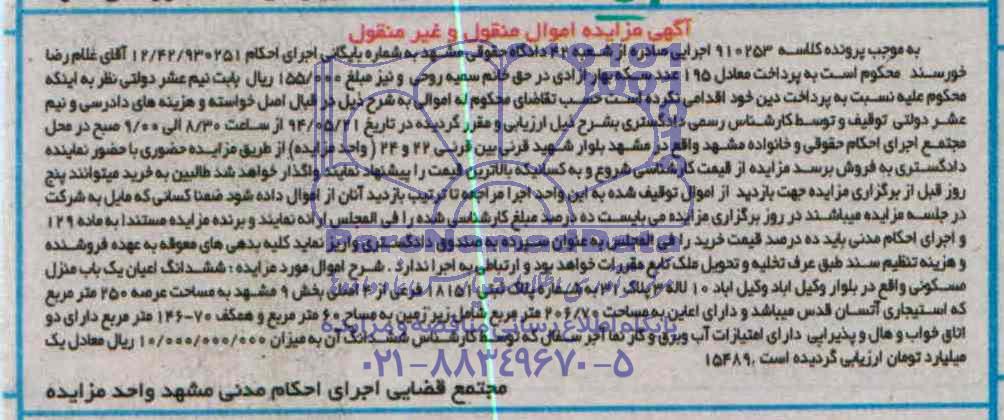 آگهی مزایده اموال منقول و غیر منقول
به موجب پرونده کلاسه 910253 اجرایی صادره از شعبه 42 دادگاه حقوقی مشهد به شماره بایگانی اجرای احکام 12/42/930251 آقای غلام رضا
خورسند محکوم است به پرداخت معادل 195 عدد سکه بهار آزادی در حق خانم سمیه روحی و نیز مبلغ 155/000 ریال بابت نیم عشر دولتی نظر به اینکه
محکوم علیه نسبت به پرداخت دین خود اقدامی نکرده است حسب تقاضای محکوم له اموالی به شرح ذیل در قبال اصل خواسته و هزینه های دادرسی و نیم
عشر دولتی توقیف و توسط کارشناس رسمی دادگستری بشرح ذیل ارزیابی و مقرر گردیده در تاریخ 94/05/21 از ساعت 8/30 الی 9/00 صبح در محل
مجتمع اجرای احکام حقوقی و خانواده مشهد واقع در مشهد بلوار شهید قرنی بین قرنی 22 و 24 (واحد مزایده) از طریق مزایده حضوری با حضور نماینده
دادگستری به فروش برسد مزایده از قیمت کارشناسی شروع و به کسانیکه بالاترین قیمت را پیشنهاد نمایند واگذار خواهد شد طالبین به خرید میتوانند پنج
روز قبل از برگزاری مزایده جهت بازدید از اموال توقیف شده به این واحد اجرا مراجعه تا ترتیب بازدید آنان از اموال داده شود ضمنا کسانی که مایل به شرکت
در جلسه مزایده میباشند در روز برگزاری مزایده می بایست ده درصد مبلغ کارشناسی شده را فی المجلس ارائه نمایند و برنده مزایده مستندا به ماده 129
و اجرای احکام مدنی باید ده درصد قیمت خرید را فی المجلس به عنوان سپرده به صندوق دادگستری واریز نماید کلیه بدهی های معوقه به عهده فروشنده
و هزینه تنظیم سند طبق عرف تخلیه و تحویل ملک تابع مقررات خواهد بود و ارتباطی به اجرا ندارد. شرح اموال مورد مزایده: ششدانگ اعیان یک باب منزل
مسکونی واقع در بلوار وکیل آباد وکیل آباد 10 لاله پلاک 32 به شماره پلاک ثبتی 18151 فرعی از 2 اصلی بخش 9 مشهد به مساحت عرصه 250 متر مربع
که استیجاری آستان قدس میباشد و دارای اعیان به مساحت 206/70 متر مربع شامل زیر زمین به مساح 60 متر مربع و همکف 146-70 متر مربع دارای دو
اتاق خواب و هال و پذیرایی دارای امتیازات آب وبرق و گاز نما آجر سفال که توسط کارشناس ششدانگ آن به میزان 10/000/000/000 ریال معادل یک
میلیارد تومان ارزیابی گردیده است. 15489
پایگاه اطلاع رسانی مناقصه و مزایده
۰۲۱-۸۸۳۴۹۶۷۰-۵
مجتمع قضایی اجرای احکام مدنی مشهد واحد مزایده